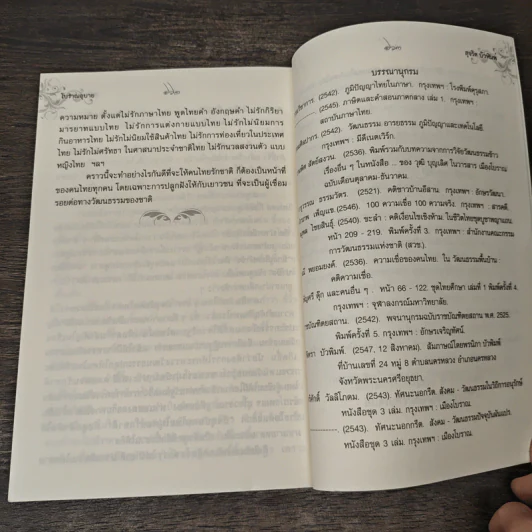 โบราณอุบาย
ความหมาย ตั้งแต่ไม่รักภาษาไทย พูดไทยคำ อังกฤษคำ ไม่รักกิริยา
มารยาทแบบไทย ไม่รักการแต่งกายแบบไทย ไม่รักไม่นิยมการ
กินอาหารไทย ไม่รักไม่นิยมใช้สินค้าไทย ไม่รักการท่องเที่ยวในประเทศ
ไทย ไม่รักไม่ศรัทธา ในศาสนาประจำชาติไทย ไม่รักนวลสงวนตัว แบบ
หญิงไทย ฯลฯ
คราวนี้จะทำอย่างไรกันดีที่จะให้คนไทยรักชาติ ก็ต้องเป็นหน้าที่
ของคนไทยทุกคน โดยเฉพาะการปลูกฝังให้กับเยาวชน ที่จะเป็นผู้เชื่อม
รอยต่อทางวัฒนธรรมของชาติ
สุจริต บัวพิมพ์
บรรณานุกรม
วิชาการ. (2542). ภูมิปัญญาไทยในภาษา. กรุงเทพฯ : โรงพิมพ์คุรุสภา.
(2545). ภาษิตและคำสอนภาคกลาง เล่ม 1. กรุงเทพฯ
สถาบันภาษาไทย.
ศิลปากร. (2542). วัฒนธรรม อารยธรรม ภูมิปัญญาและเทคโนโลยี
กรุงเทพฯ : มีดีเนตเวิร์ก.
(2536). พิมพ์รวมกับบทความจากการวิจัยวัฒนธรรมข้าว
เรื่องอื่น ๆ ในหนังสือ .. ของ วุฒิ บุญเลิศ ในวารสาร เมืองโบราณ
ฉบับเดือนตุลาคม-ธันวาคม.
ธรรมวัตร. (2521). คติชาวบ้านอีสาน. กรุงเทพฯ : อักษรวัฒนา.
เพ็ญแข. (2546). 100 ความเชื่อ 100 ความจริง. กรุงเทพฯ : สารคดี.
ไชยสินธุ์. (2540). ชะลำ : คติเงื่อนไขเชิงห้าม ในชีวิตไทยชุดบูชาพญาแถน.
หน้า 209 - 219. พิมพ์ครั้งที่ 3. กรุงเทพฯ : สำนักงานคณะกรรม
การวัฒนธรรมแห่งชาติ (สวช.)
พยอมยงค์. (2536). ความเชื่อของคนไทย. ใน วัฒนธรรมพื้นบ้าน :
คติความเชื่อ.
ตุ๊ก และคนอื่น ๆ . หน้า 66 - 122. ชุดไทยศึกษา เล่มที่ 1 พิมพ์ครั้งที่ 4.
กรุงเทพฯ : จุฬาลงกรณ์มหาวิทยาลัย.
ราชบัณฑิตยสถาน. (2542). พจนานุกรมฉบับราชบัณฑิตยสถาน พ.ศ. 2525.
พิมพ์ครั้งที่ 5. กรุงเทพฯ : อักษรเจริญทัศน์.
บัวพิมพ์. (2547, 12 สิงหาคม). สัมภาษณ์โดยพรนิภา บัวพิมพ์
ที่บ้านเลขที่ 24 หมู่ 8 ตำบลนครหลวง อำเภอนครหลวง
จังหวัดพระนครศรีอยุธยา.
วัลลิโภดม. (2543). ทัศนะนอกกรีต. สังคม - วัฒนธรรมในวิถีการอนุรักษ์
หนังสือชุด 3 เล่ม. กรุงเทพฯ : เมืองโบราณ.
(2543). ทัศนะนอกกรีต. สังคม - วัฒนธรรมปัจจุบันผันแปร.
หนังสือชุด 3 เล่ม. กรุงเทพฯ : เมืองโบราณ.